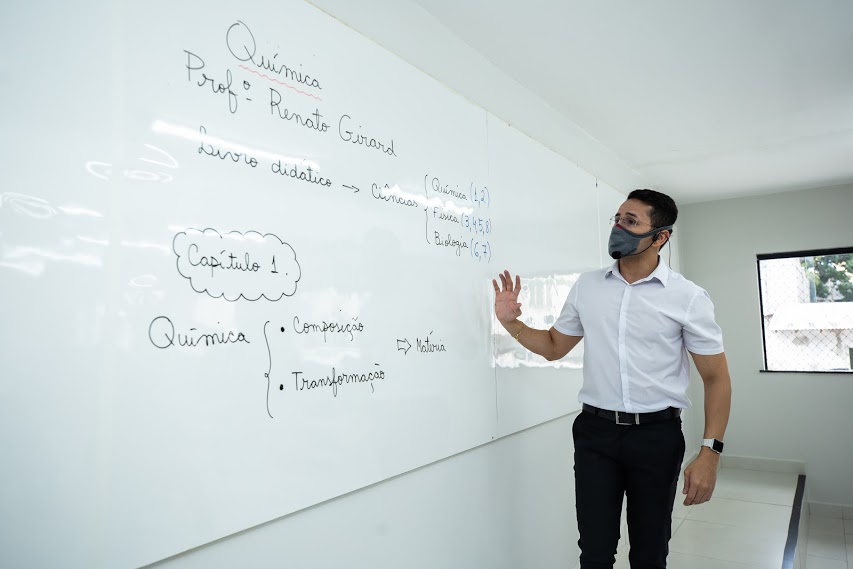 Química
Profº. Renato Girard
Livro didático → Ciências { Química (1,2)
Física (3,4,5,8)
Biologia (6,7)
Capítulo 1.
Química { • Composição
• Transformação
⇨ Matéria